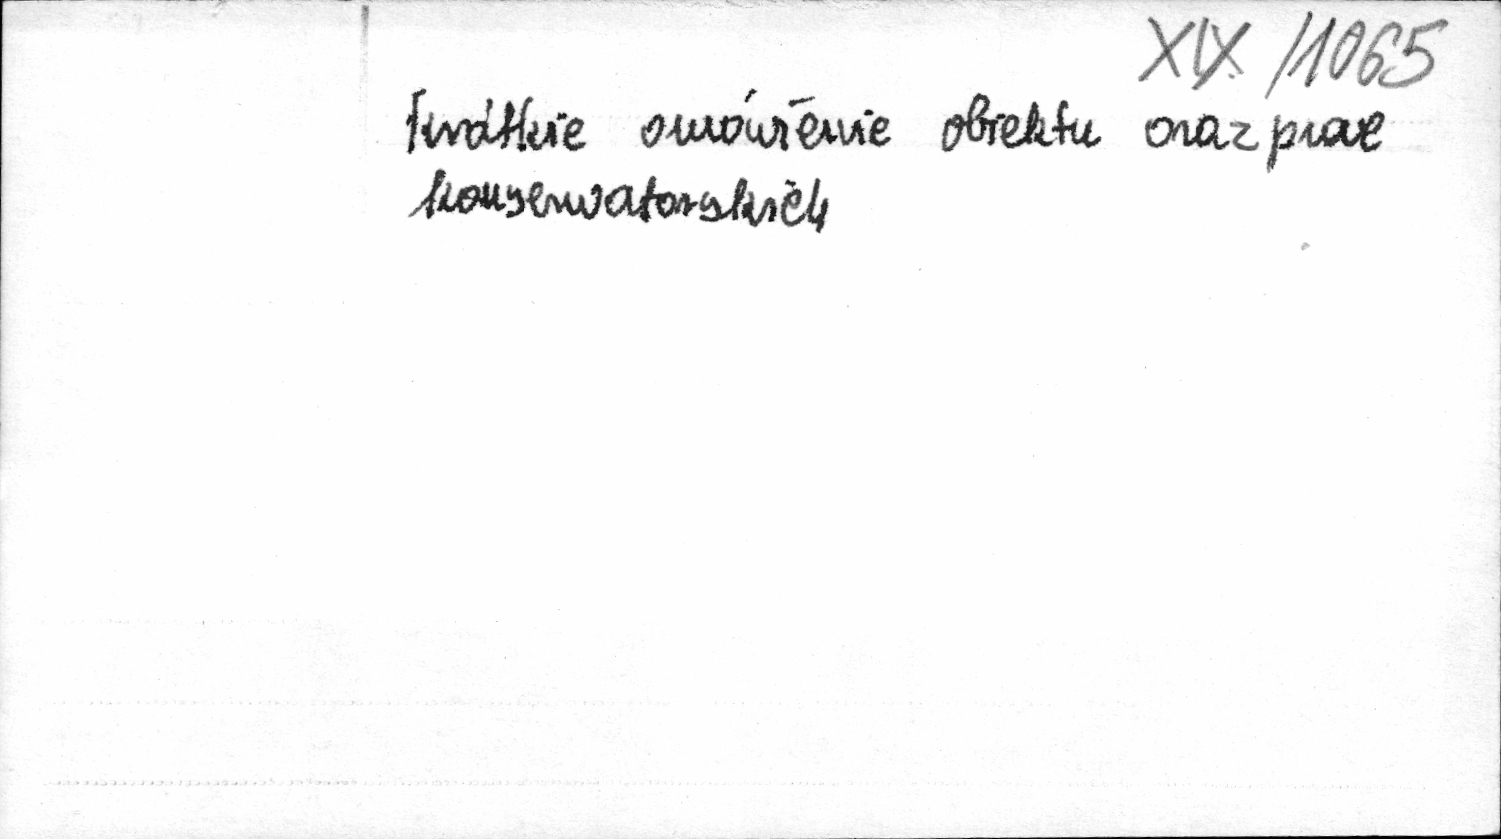 XIX /1065
krótkie omówienie obiektu oraz prac
konserwatorskich